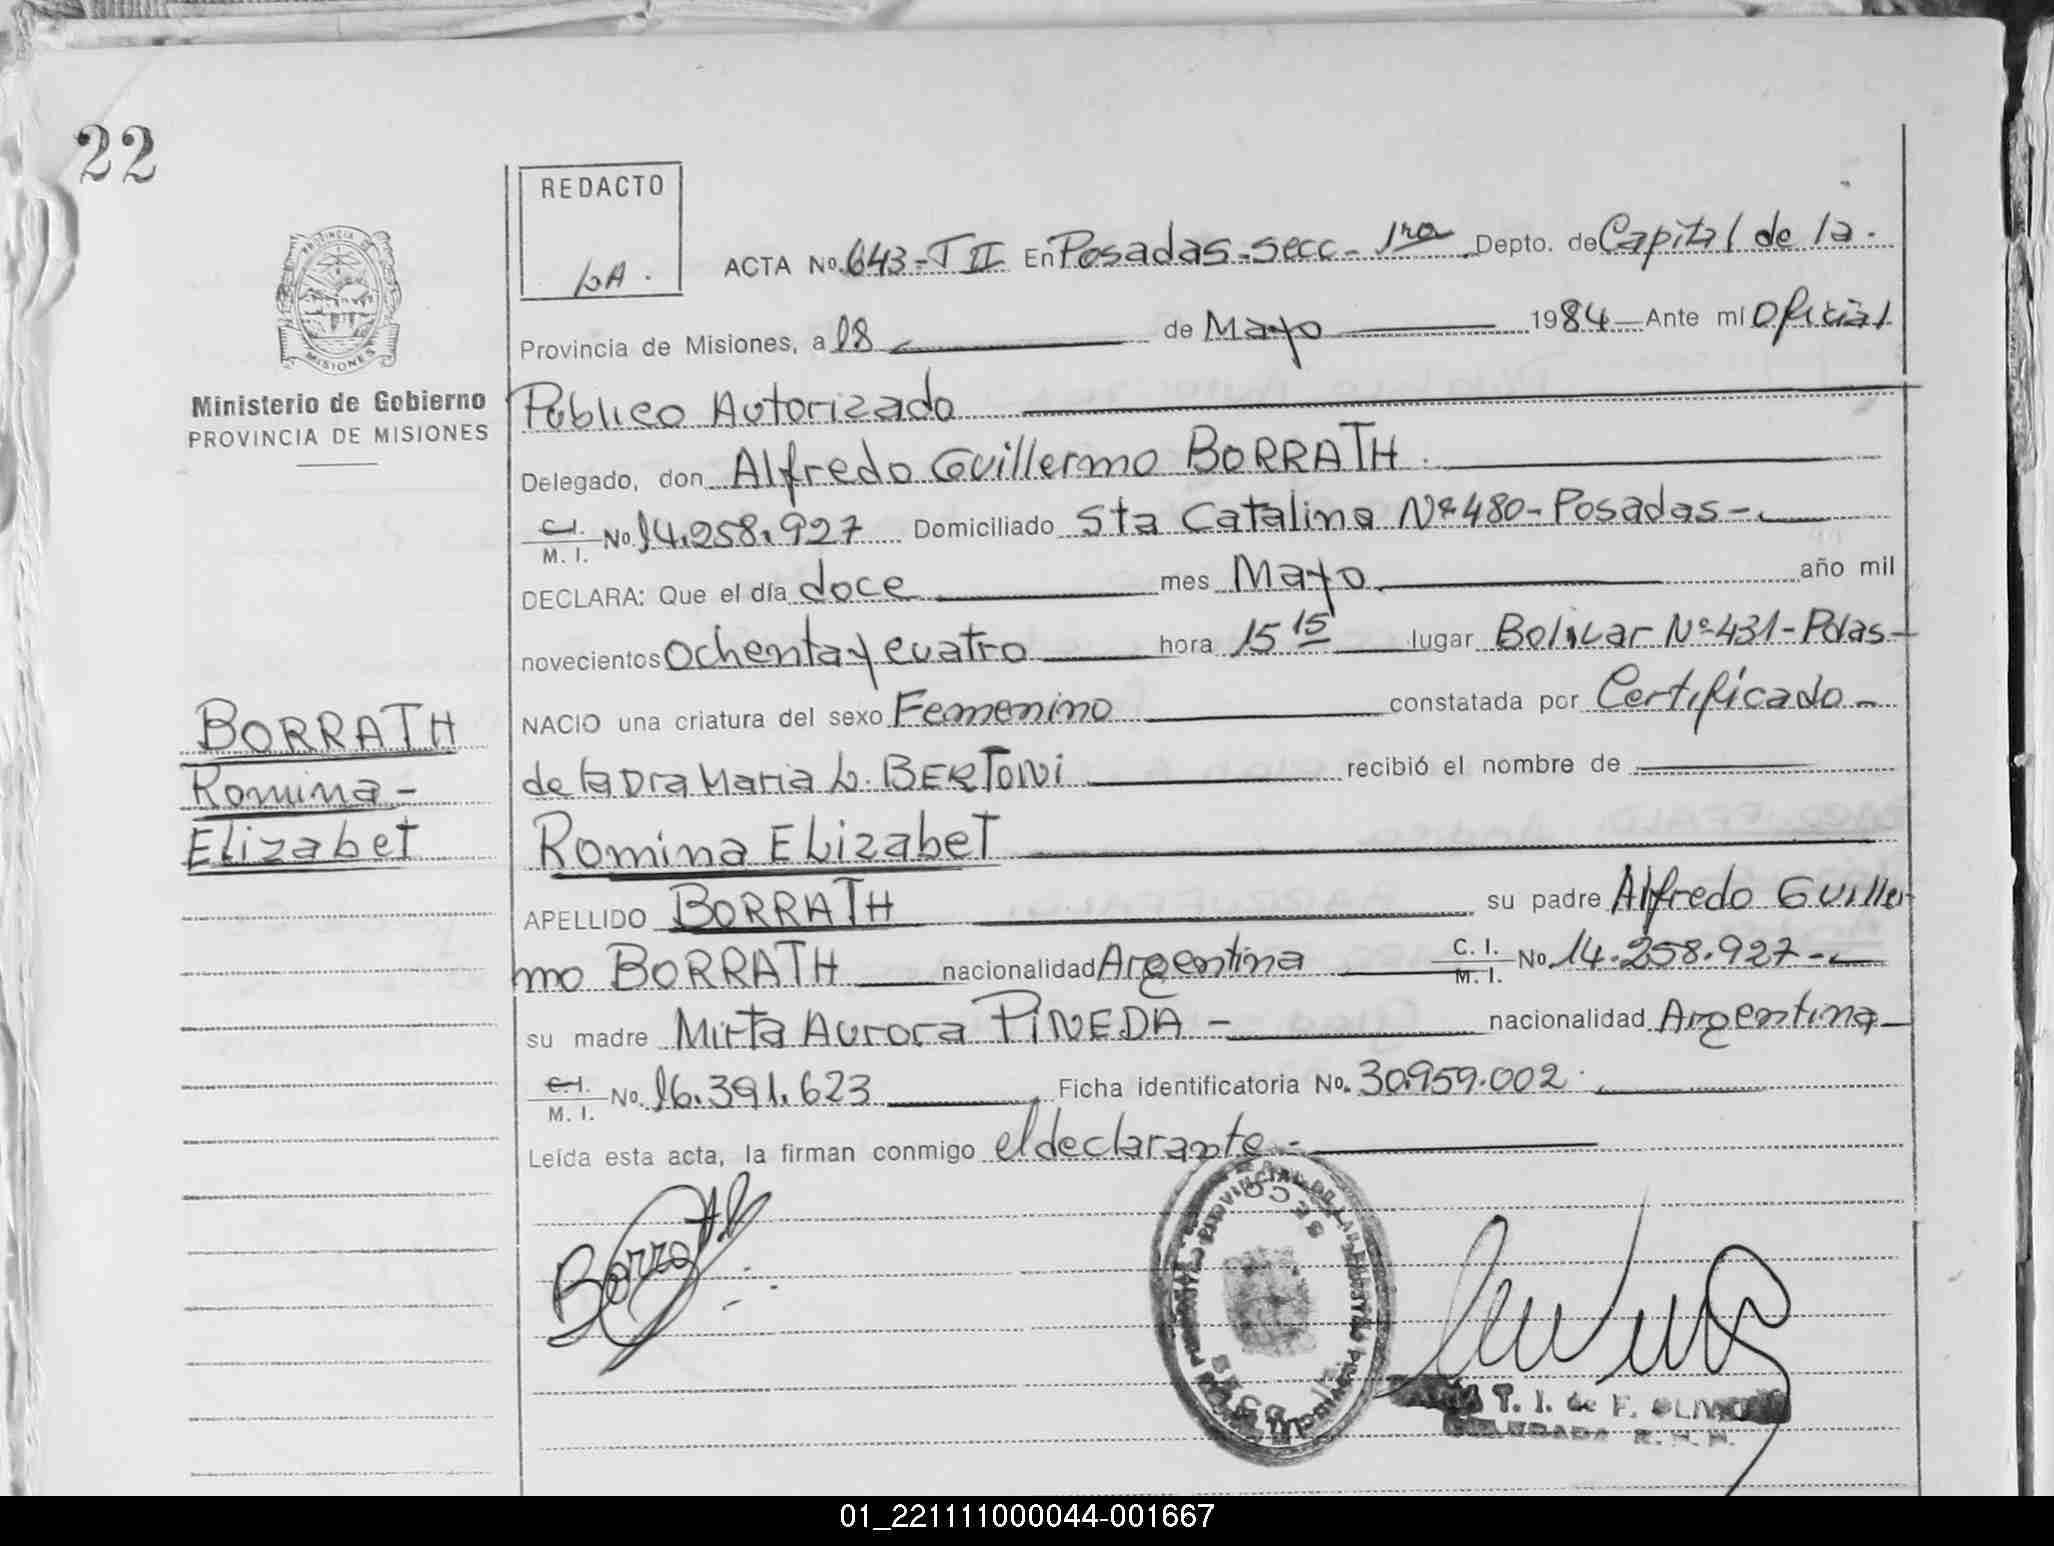 22
REDACTO
LA.
ACTA No. 643-T II En Posadas-Secc-1ra Depto. de Capital de la.
PROVINCIA DE
MISIONES
Provincia de Misiones, a 18 de Mayo 1984 Ante mí Oficial
Ministerio de Gobierno
PROVINCIA DE MISIONES
Publico Autorizado
Delegado, don Alfredo Guillermo BORRATH.
C.I.
M. I. No. 14.258.927 Domiciliado Sta Catalina Nº 480-Posadas-
DECLARA: Que el día doce mes Mayo año mil
novecientos Ochenta y cuatro hora 15 15 lugar Bolivar Nº 431-Pdas-
BORRATH
Romina-
Elizabet
NACIO una criatura del sexo Femenino constatada por Certificado-
de la Dra Maria L. BERTONI recibió el nombre de
Romina Elizabet
APELLIDO BORRATH su padre Alfredo Guiller
mo BORRATH nacionalidad Argentina C. I.
M. I. No. 14.258.927-
su madre Mirta Aurora PINEDA- nacionalidad Argentina-
C.I.
M. I. No. 16.391.623 Ficha identificatoria No. 30.959.002.
Leída esta acta, la firman conmigo el declarante-
Borrath
T. I. de F.
01_221111000044-001667